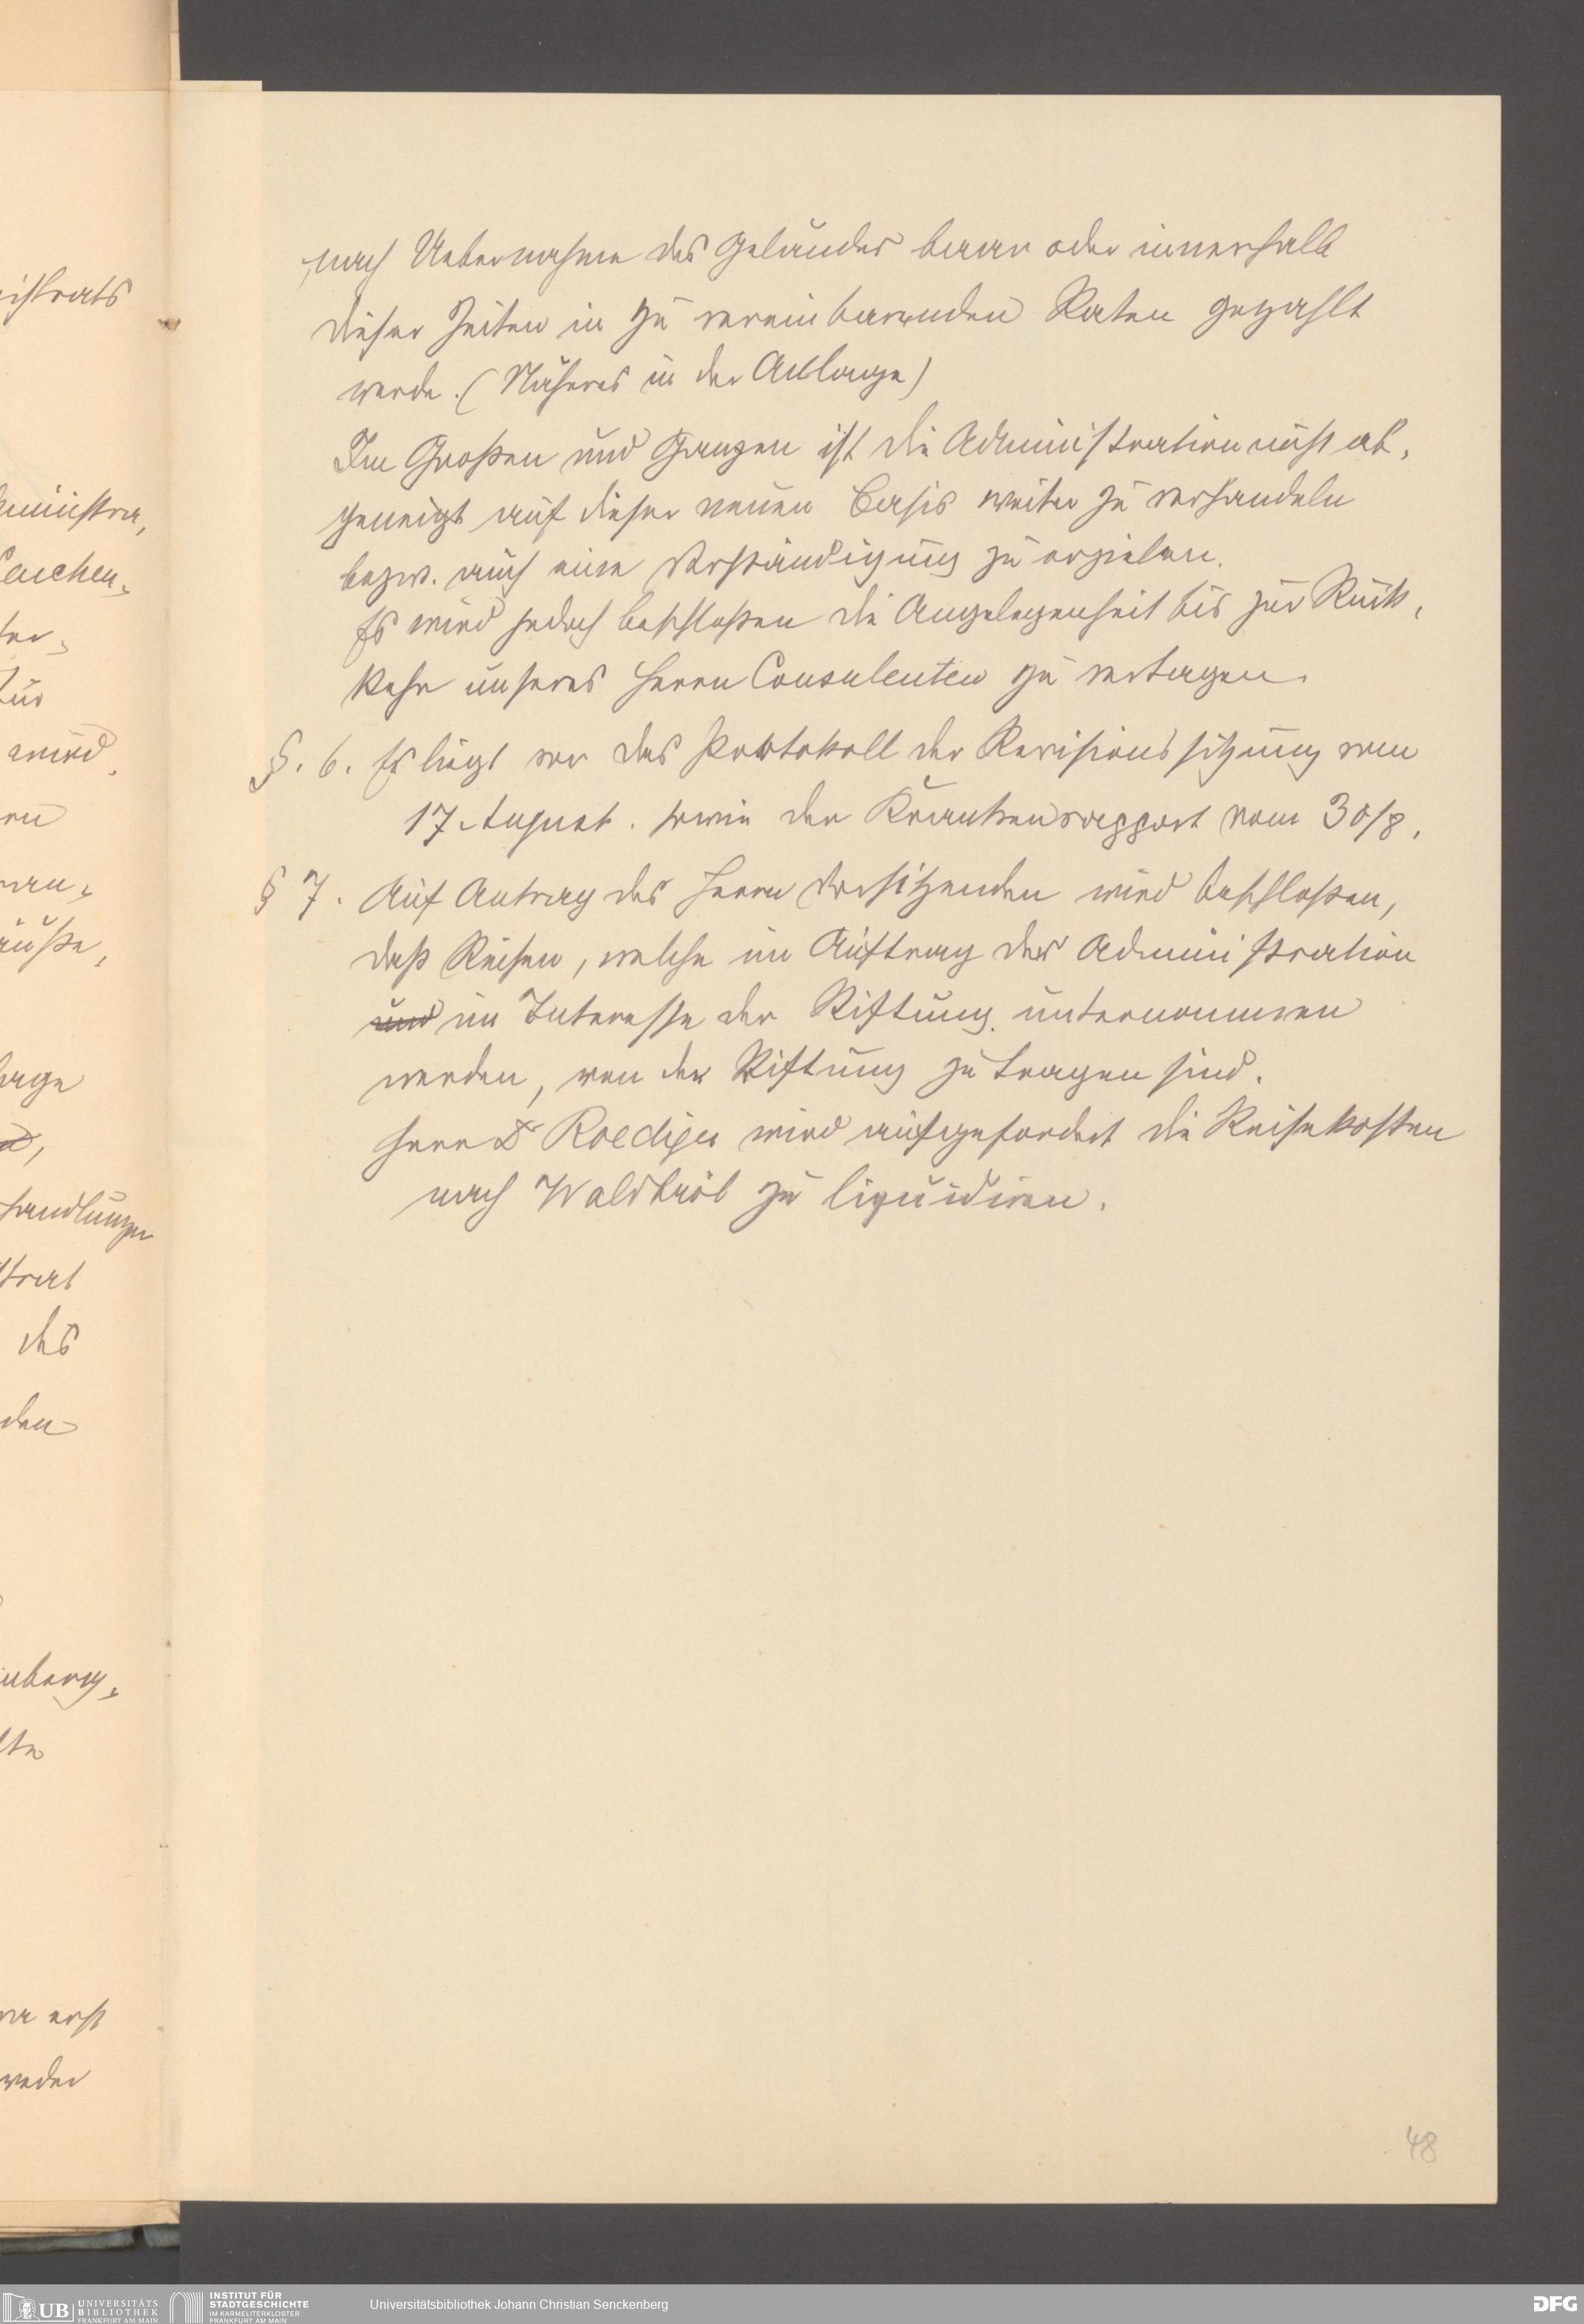 nach Uebernahme des Geländes baar oder innerhalb
dieser Zeiten in zu vereinbarenden Raten gezahlt
werde. (Näheres in der Anlage)
Im Großen und Ganzen ist die Administration nicht ab-
geneigt auf dieser neuen Basis weiter zu verhandeln
bezw. auch eine Verständigung zu erzielen.
Es wird jedoch beschloßen die Angelegenheit bis zur Rück-
kehr unseres Herrn Consulenten zu vertagen.
§. 6. Es liegt vor das Protokoll der Revisionssitzung vom
17. August. sowie der Krankenrapport vom 30/8.
§ 7. Auf Antrag des Herrn Vorsitzenden wird beschloßen,
daß Reisen, welche im Auftrag der Administration
und im Interesse der Stiftung unternommen
werden, von der Stiftung zu tragen sind.
Herr Dr Roediger wird aufgefordert die Reisekosten
nach Waldbröl zu liquidiren.
48
istrats
dministra-
Leichen-
ter-
zur
wird
äuße,
lage
handlungen
strat
des
den
erst
weder
UB UNIVERSITÄTS BIBLIOTHEK FRANKFURT AM MAIN
INSTITUT FÜR STADTGESCHICHTE IM KARMELITERKLOSTER FRANKFURT AM MAIN
Universitätsbibliothek Johann Christian Senckenberg
DFG